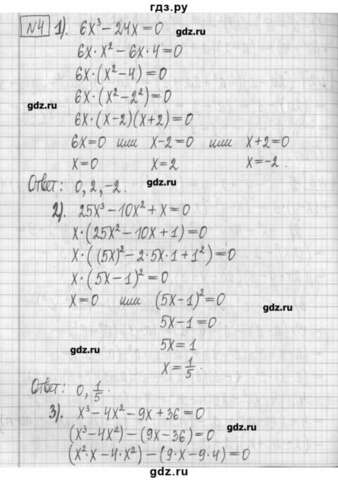 гдз.ру
№4 1). 6x³ − 24x = 0
gdz.ru
6x · x² − 6x · 4 = 0
6x · (x² − 4) = 0
gdz.ru
6x · (x² − 2²) = 0
gdz.ru
6x · (x − 2)(x + 2) = 0
6x = 0 или x − 2 = 0 или x + 2 = 0
x = 0 x = 2 x = −2.
Ответ: 0, 2, −2.
gdz.ru
2). 25x³ − 10x² + x = 0
x · (25x² − 10x + 1) = 0
x · ((5x)² − 2 · 5x · 1 + 1²) = 0
x · (5x − 1)² = 0
x = 0 или (5x − 1)² = 0
gdz.ru
5x − 1 = 0
gdz.ru
5x = 1
x = 1/5.
Ответ: 0, 1/5.
gdz.ru
3). x³ − 4x² − 9x + 36 = 0
gdz.ru
(x³ − 4x²) − (9x − 36) = 0
(x² · x − 4 · x²) − (9 · x − 9 · 4) = 0
gdz.ru